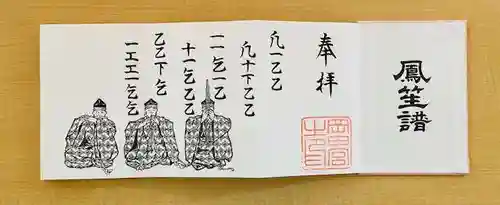 鳳笙譜
奉拝
凢一乙乙
凢十下乙乙
一一乞一乙
十一乞乙乙
乙乙下乞
一工工一乞乞